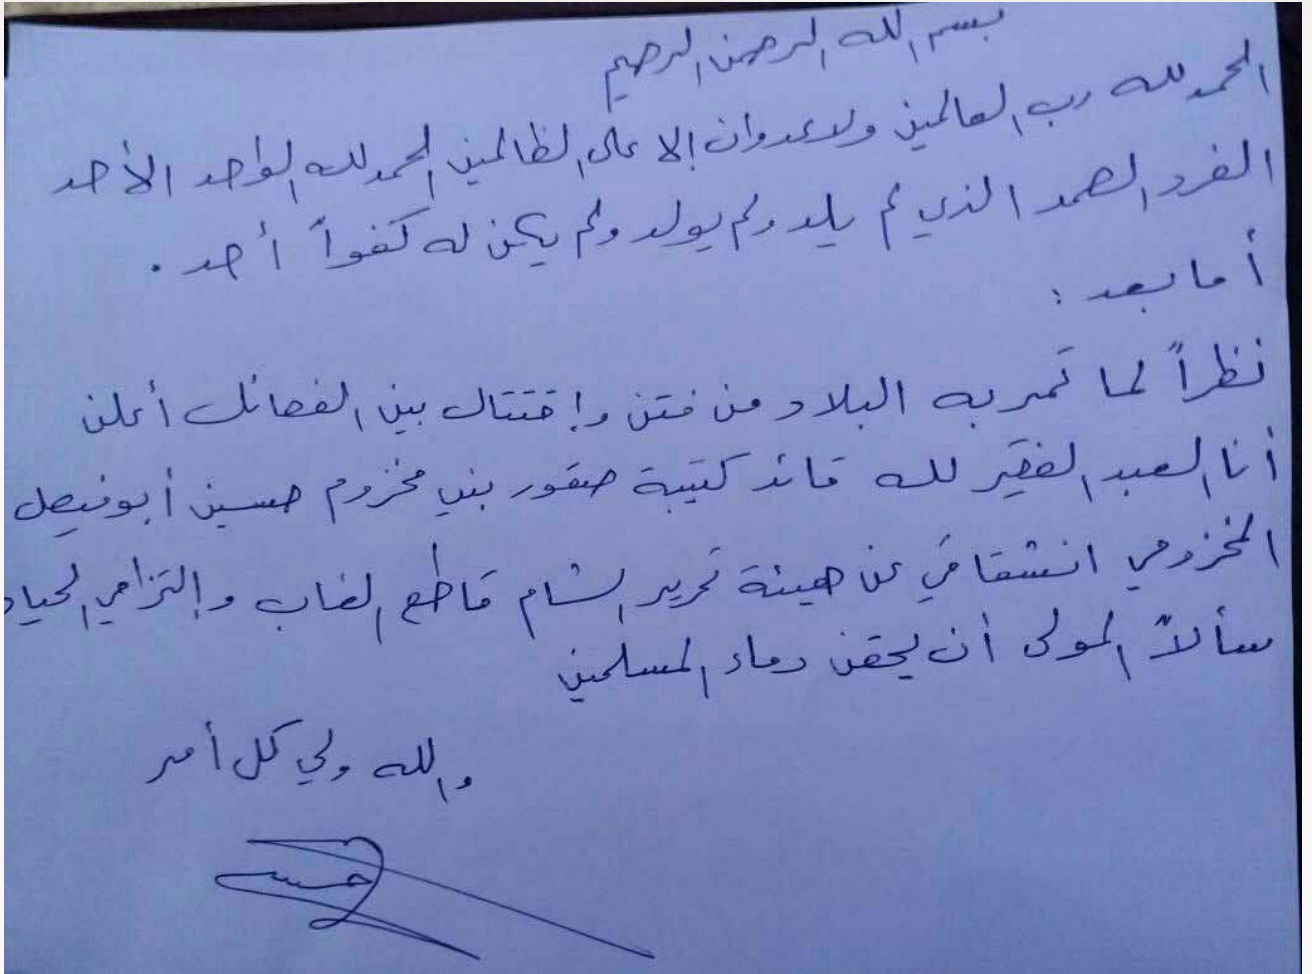 بسم الله الرحمن الرحيم
الحمد لله رب العالمين ولا عدوان إلا على الظالمين الحمد لله الواحد الأحد
الفرد الصمد الذي لم يلد ولم يولد ولم يكن له كفواً أحد .
أما بعد :
نظراً لما تمر به البلاد من فتن وإقتتال بين الفصائل أعلن
أنا العبد الفقير لله قائد كتيبة صقور بني مخزوم حسين أبو فيصل
المخزومي انشقاقي عن هيئة تحرير الشام قاطع الغاب وإلتزامي الحياد
سألاً المولى أن يحقن دماء المسلمين
والله ولي كل أمر
حسين